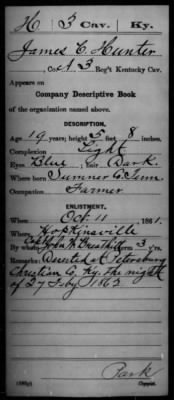 H 3 Cav. Ky.
James C. Hunter
, Co. A 3 Reg't Kentucky Cav.
Appears on
Company Descriptive Book
of the organization named above.
DESCRIPTION.
Age 19 years; height 5 feet 8 inches.
Complexion Light
Eyes Blue ; hair Dark.
Where born Sumner Co. Tenn
Occupation Farmer
ENLISTMENT.
When Oct. 11 , 1861.
Where Hopkinsville
By whom Capt. John W. Breathitt term 3 y'rs.
Remarks: Deserted at Petersburg
Christian Co. Ky. The night
of 27 Feby 1862
Park
Copyist.